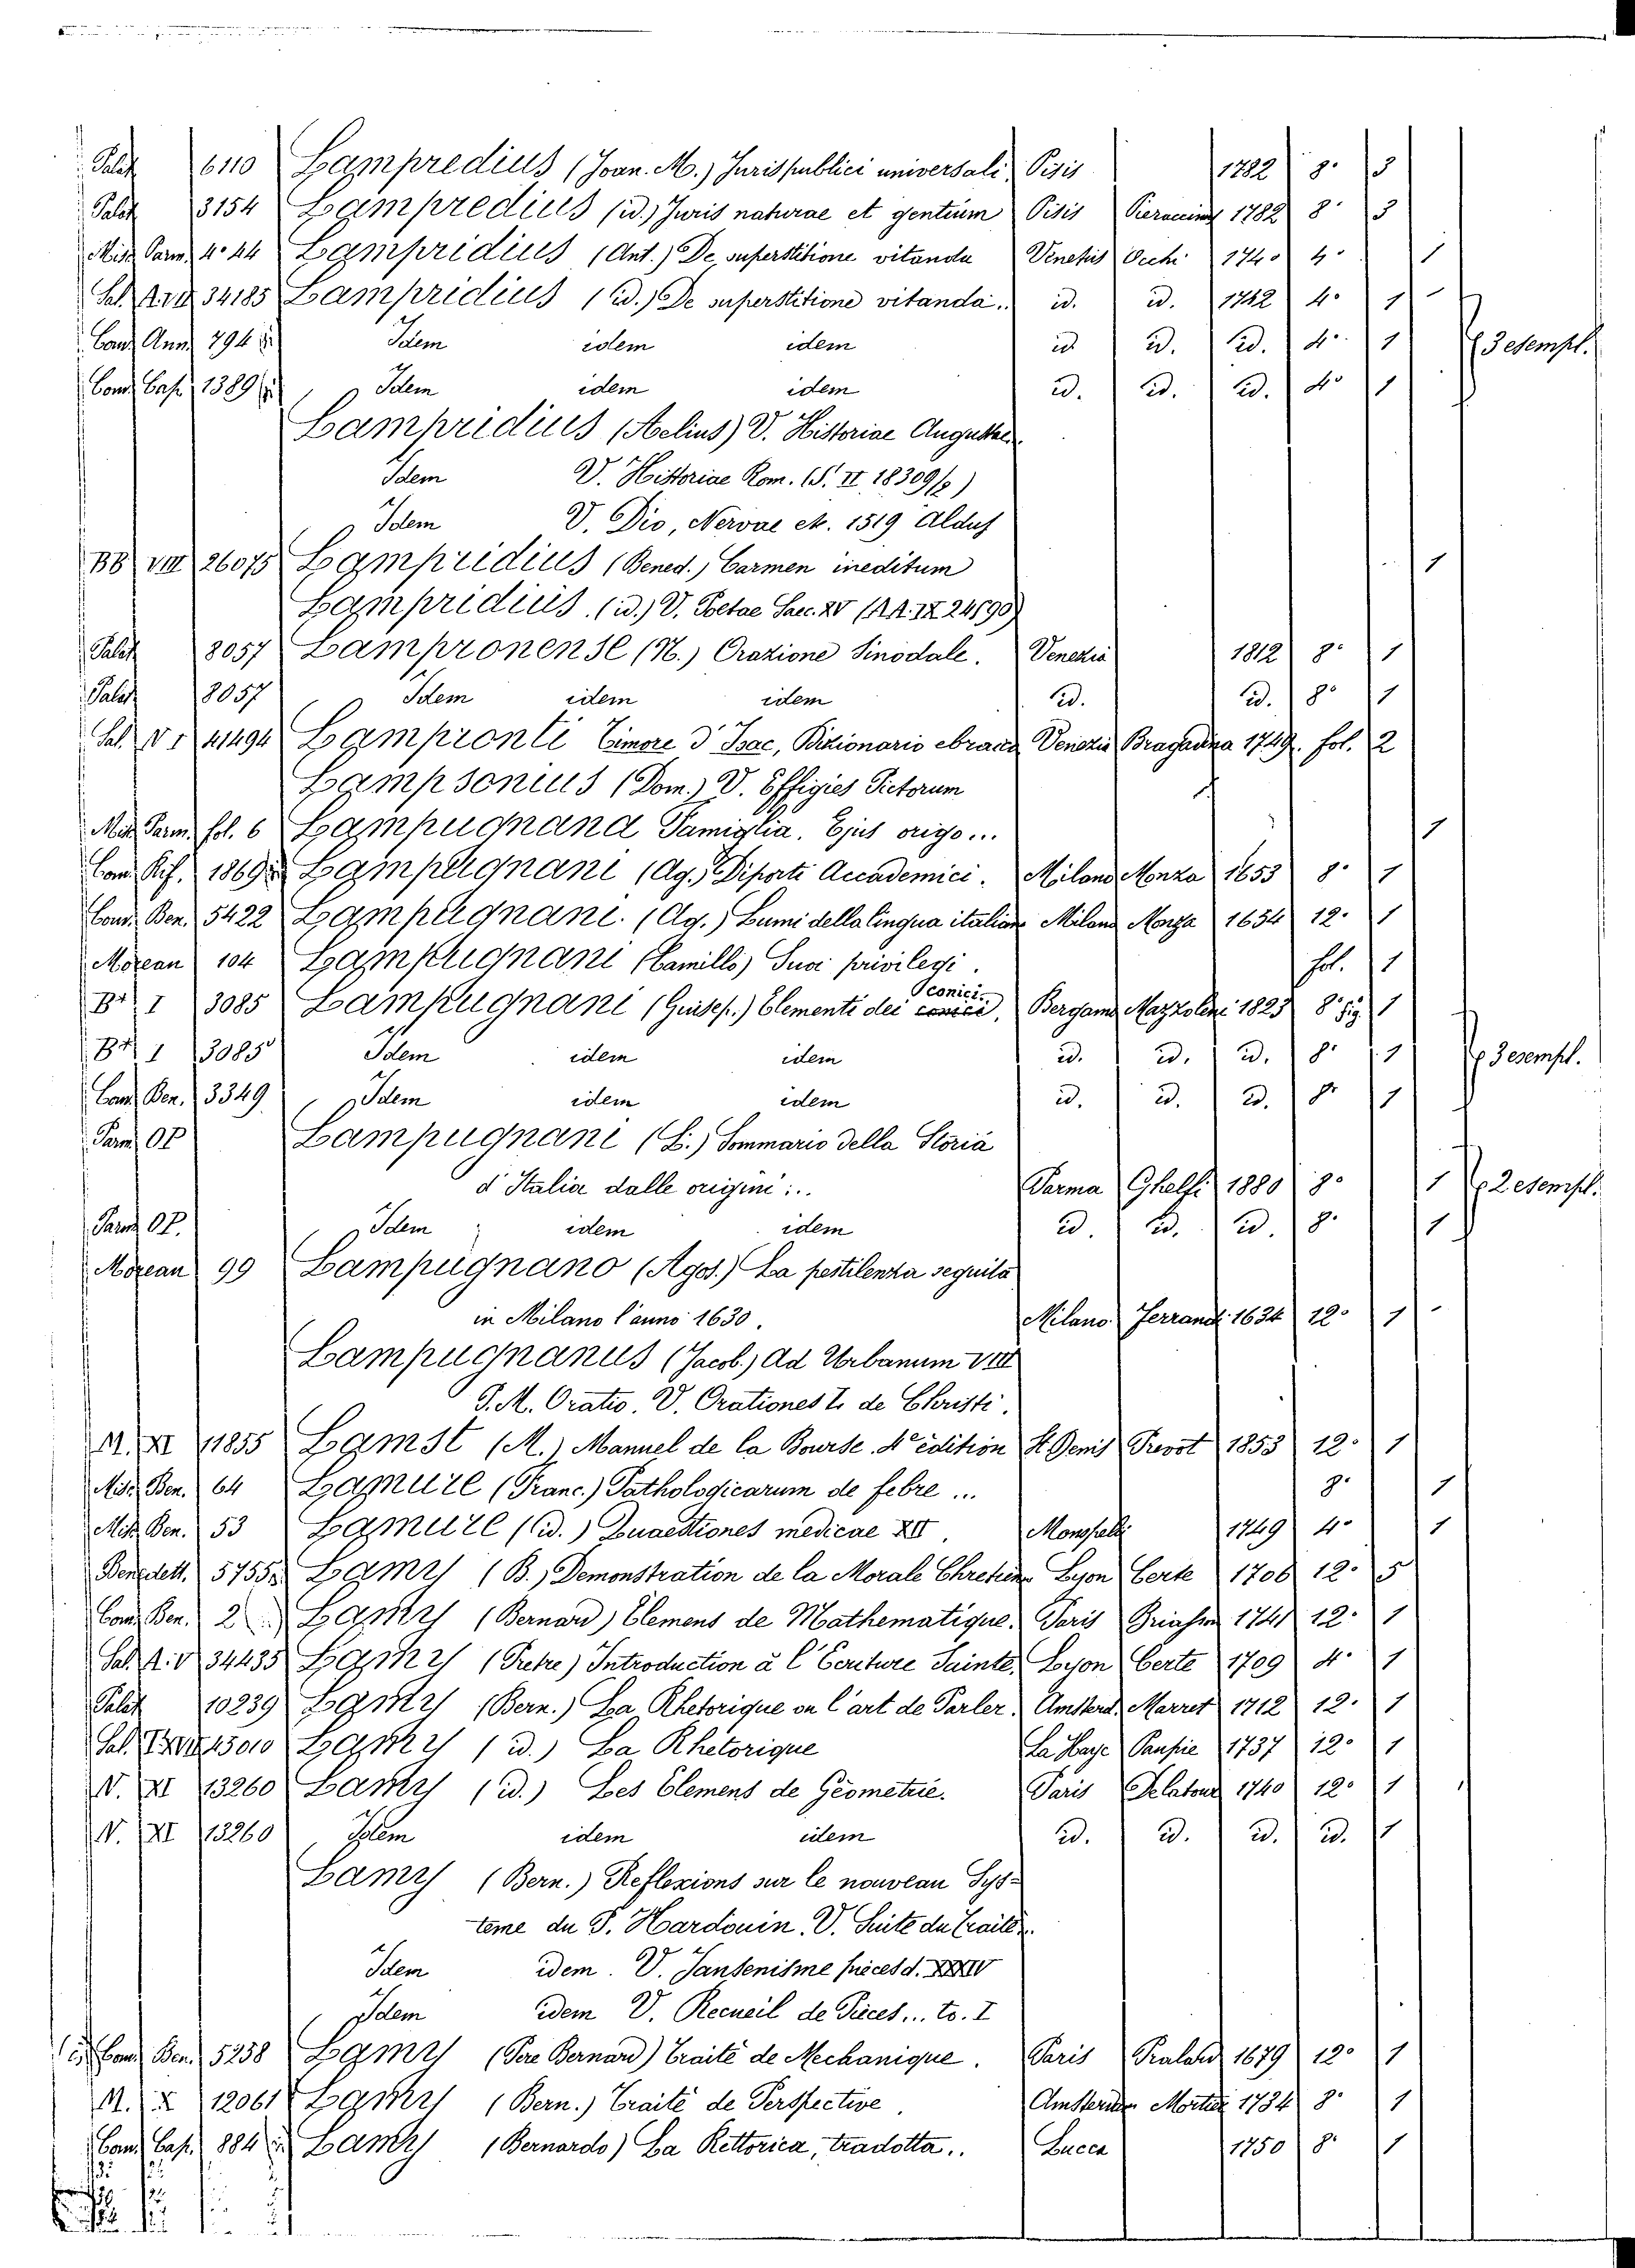 Palat. 6110 Lampredius (Joan. M.) Juris publici universali Pisis 1782 8° 3
Palat. 3154 Lampredius (id.) Juris naturae et gentium Pisis 1782 8° 3
Misc. Parm. 4° 44 Lampridius (Ant.) De superstitione vitanda Venetiis Occhi 1740 4° 1
34185 Lampridius (id.) De superstitione vitanda.. id. id. 1742 4° 1
794 Idem idem idem id id. id. 4° 1 3 esempl.
Cap. 1389 Idem idem idem id. id. id. 4° 1
Lampridius (Aelius) V. Historiae Augustae
Idem V. Historiae Rom. (S. II 18309/2)
Idem V. Dio, Nervae etc. 1519 Aldus
BB VIII 26075 Lampridius (Bened.) Carmen ineditum 1
Lampridius (id.) V. Poetae Saec. XV (AA. IX 24590)
Palat. 8057 Lampronense (N.) Orazione Sinodale. Venezia 1812 8° 1
Palat. 8057 Idem idem idem id. id. 8° 1
Sal. V I 41494 Lampronti Eimore d' Isac, Dizionario ebraico Venezia Bragadina 1749. fol. 2
Lampsonius (Dom.) V. Effigies Pictorum
Mis. Parm. fol. 6 Lampugnana Famiglia. Ejus origo... 1
1869 Lampugnani (Ag.) Diporti Accademici. Milano Monza 1653 8° 1
Ben. 5422 Lampugnani. (Ag.) Lumi della lingua italiana Milano Monza 1654 12° 1
Morean 104 Lampugnani (Camillo) Suoi privilegi. fol. 1
I 3085 Lampugnani (Guisep.) Elementi dei conici conici, Bergamo Mazzoleni 1825 8° fig. 1
1 3085 Idem idem idem id. id. id. 8° 1 3 esempl.
Ben. 3349 Idem idem idem id. id. id. 8° 1
Parm. OP Lampugnani (L.) Sommario della Storia
d'Italia dalle origini... Parma Ghelfi 1880 8° 1 2 esempl.
Parm. OP. Idem idem idem id. id. id. 8° 1
Morean 99 Lampugnano (Agos.) La pestilenza seguita
in Milano l'anno 1630. Milano Ferrandi 1634 12° 1
Lampugnanus (Jacob.) Ad Urbanum VIII
P. M. Oratio. V. Orationes L. de Christi.
M. XI 11855 Lamst (M.) Manuel de la Bourse. 4e édition St Denis Prevot 1853 12° 1
Mis. Ben. 64 Lamure (Franc.) Pathologicarum de febre ... 8° 1
Mis. Ben. 53 Lamure (id.) Quaestiones medicae XII. Monspeli 1749 4° 1
Benedett. 5755 Lamy (B.) Demonstration de la Morale Chretienne Lyon Certe 1706 12° 5
Ben. 2 Lamy (Bernard) Elemens de Mathematique. Paris Briasson 1741 12° 1
34435 Lamy (Pretre) Introduction à l'Ecriture Sainte. Lyon Certe 1709 4° 1
Palat. 10239 Lamy (Bern.) La Rhetorique ou l'art de Parler. Amsterd. Marret 1712 12° 1
15010 Lamy (id.) La Rhetorique La Haye Paupie 1737 12° 1
V. XI 13260 Lamy (id.) Les Elemens de Géometrie. Paris Delatour 1740 12° 1
V. XI 13260 Idem idem idem id. id. id. id. 1
Lamy (Bern.) Reflexions sur le nouveau Sys-
teme du P. Hardouin. V. Suite du Traité.
Idem idem. V. Jansenisme pieces d. XXXIV
Idem idem V. Recueil de Pièces... to. I
Ben. 5258 Lamy (Pere Bernard) Traité de Mechanique. Paris Pralard 1679 12° 1
M. X 12061 Lamy (Bern.) Traité de Perspective. Amsterdam Mortier 1734 8° 1
Cap. 884 Lamy (Bernardo) La Rettorica, tradotta.. Lucca 1750 8° 1